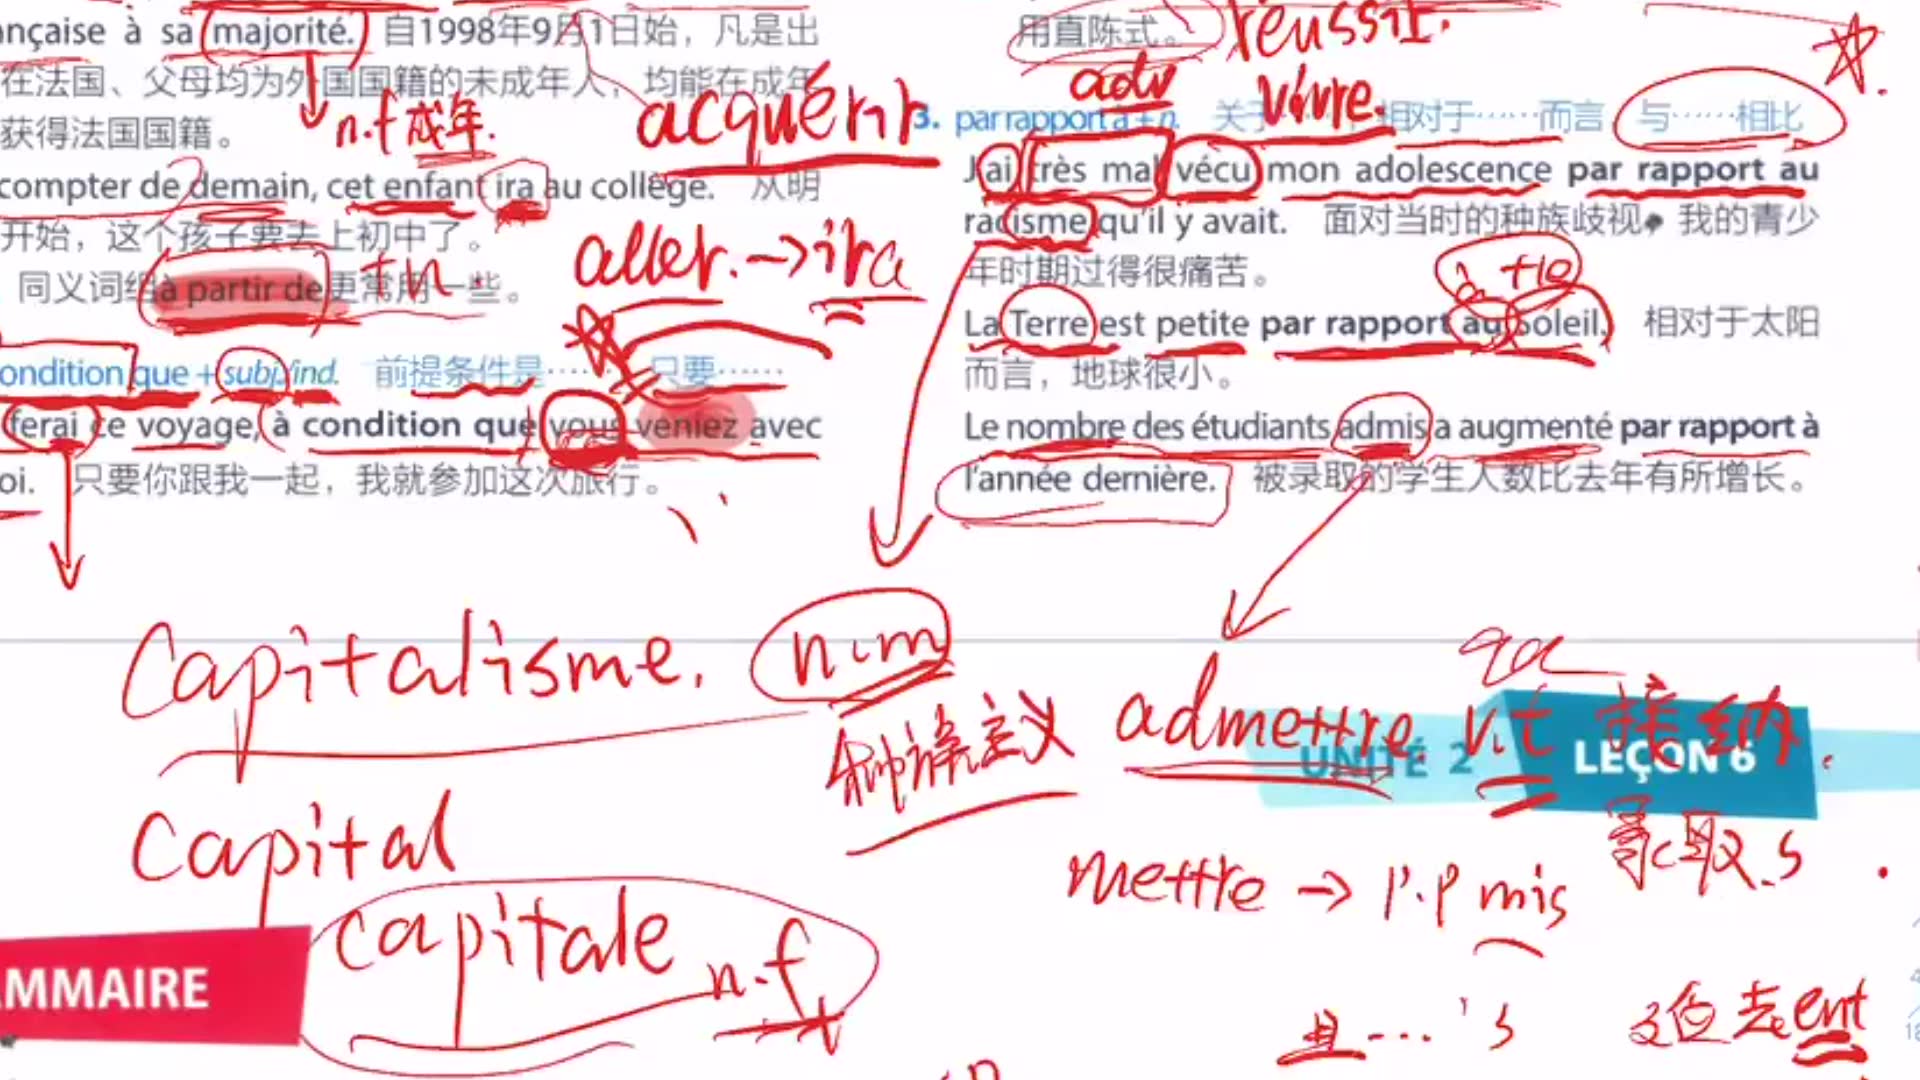 nçaise à sa majorité. 自1998年9月1日始，凡是出
在法国、父母均为外国国籍的未成年人，均能在成年
获得法国国籍。
n.f 成年.
acquérir
compter de demain, cet enfant ira au collège. 从明
开始，这个孩子要去上初中了。
aller. → ira
同义词组à partir de更常用一些。
+n.
ondition que + subj./ind. 前提条件是…… 只要……
ferai ce voyage, à condition que vous veniez avec
oi. 只要你跟我一起，我就参加这次旅行。
capitalisme. n.m
capital
capitale n.f
MMAIRE
用直陈式。
réussir.
adv
vivre.
3. par rapport à + n. 关于……，相对于……而言，与……相比
J'ai très mal vécu mon adolescence par rapport au
racisme qu'il y avait. 面对当时的种族歧视，我的青少
年时期过得很痛苦。
à +le
La Terre est petite par rapport au Soleil. 相对于太阳
而言，地球很小。
Le nombre des étudiants admis a augmenté par rapport à
l'année dernière. 被录取的学生人数比去年有所增长。
种族主义
admettre. v.t 接纳.
UNITÉ 2 LEÇON 6
录取.s
mettre → p.p mis
且…'s
3位去ent